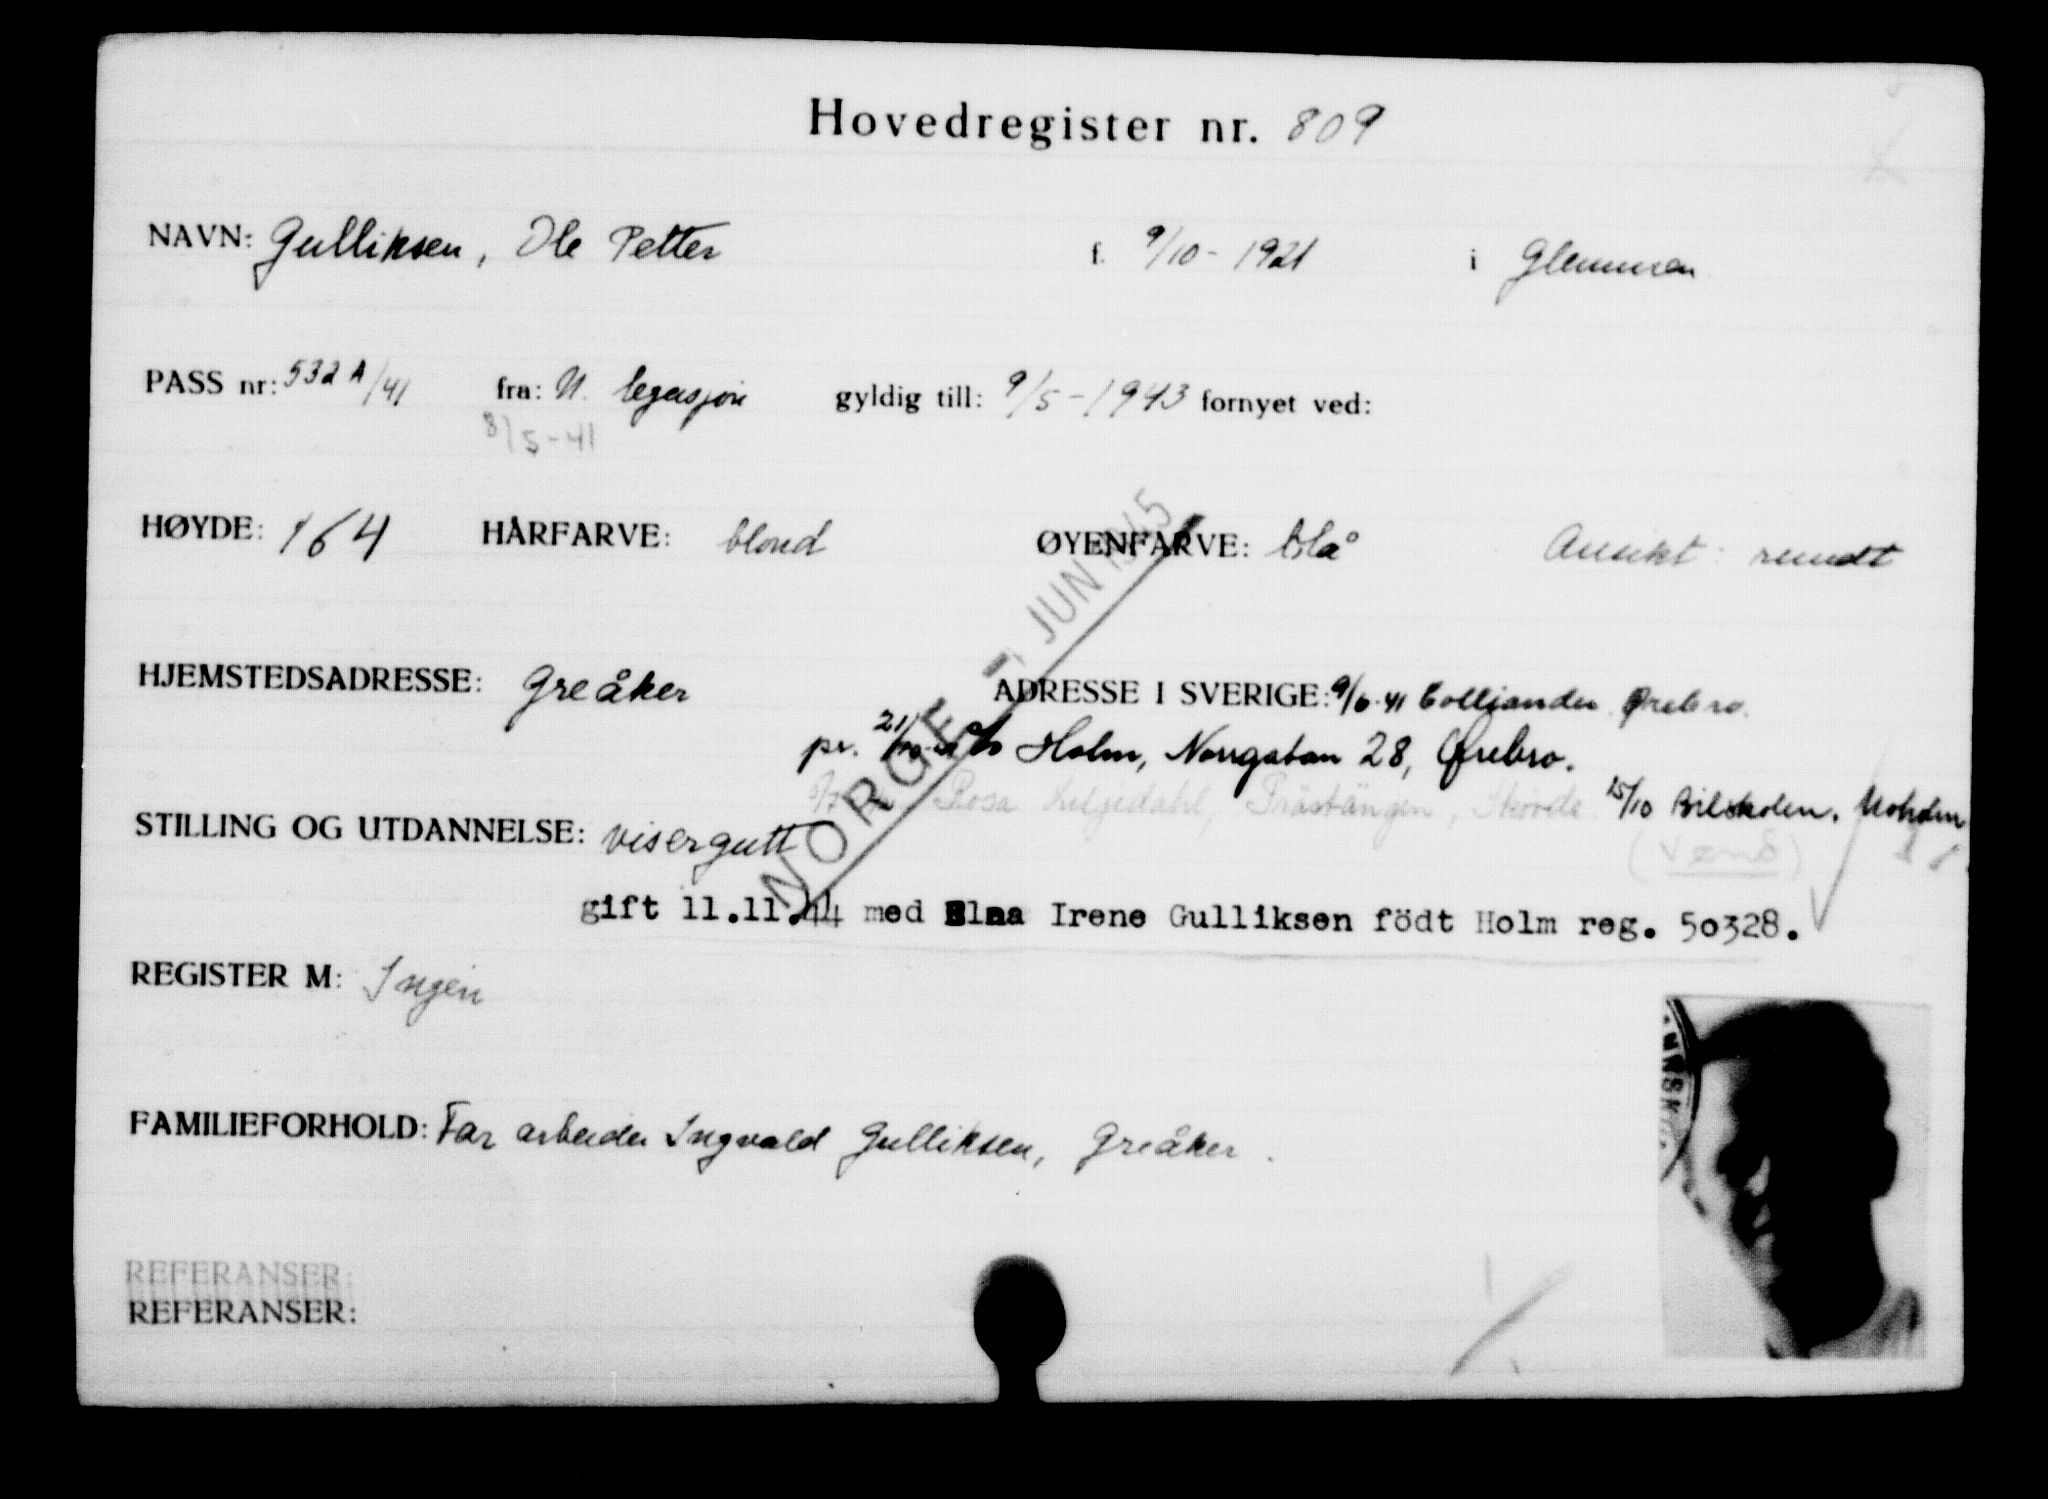 Hovedregister nr. 809
NAVN: Gulliksen, Ole Petter f. 9/10-1921 i Glemmen
PASS nr: 532 A/41 fra: N. legasjon gyldig till: 9/5-1943 fornyet ved:
8/5-41
HØYDE: 164 HÅRFARVE: blond ØYENFARVE: blå Ansikt: rundt
HJEMSTEDSADRESSE: Greåker ADRESSE I SVERIGE: 9/6-41 Colliander Ørebro.
pr. 21/10 Holm, Norrgatan 28, Ørebro.
Rosa Liljedahl, Prästängen, Skövde 15/10 Bilskolen. Moholm
STILLING OG UTDANNELSE: visergutt
NORGE JUN 1945
gift 11.11.44 med Elna Irene Gulliksen födt Holm reg. 50328.
REGISTER M: Ingen
FAMILIEFORHOLD: Far arbeider Ingvald Gulliksen, Greåker.
REFERANSER:
REFERANSER: